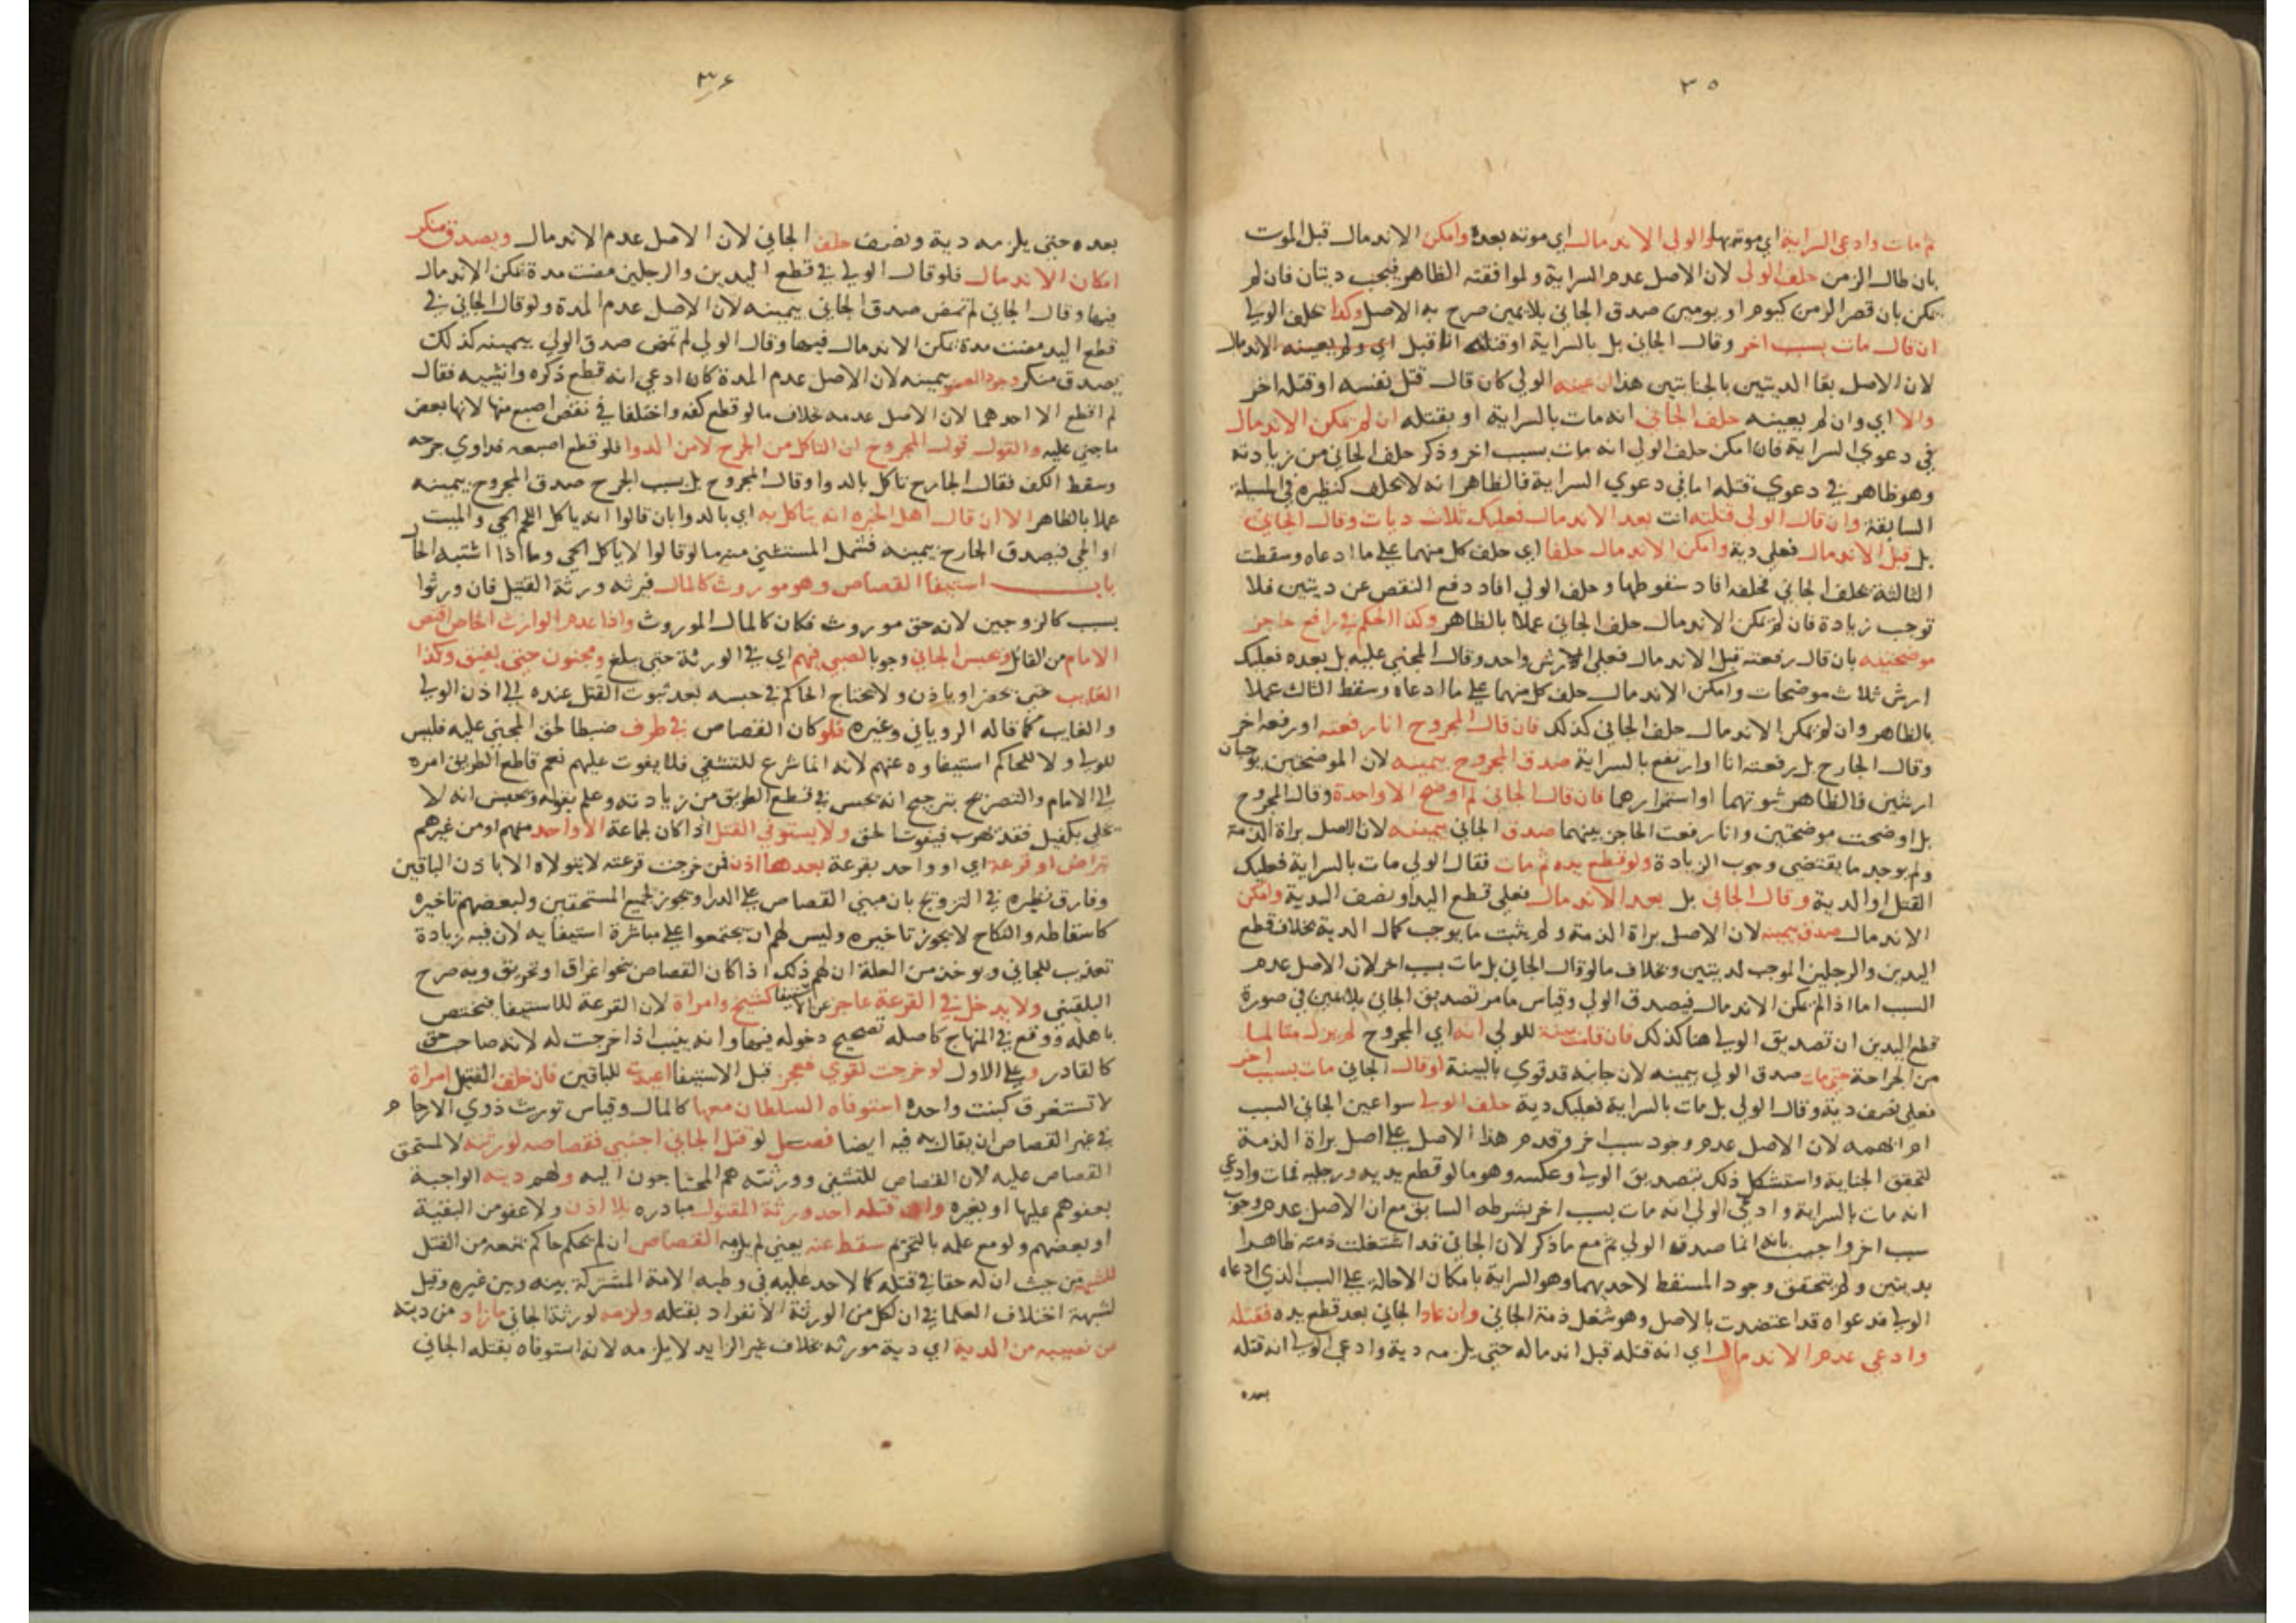 ٣٥
ثم مات وادعى السراية اي موته بها والولي الاندمال اي موته بعده وامكن الاندمال قبل الموت
بان طال الزمن حلف الولي لان الاصل عدم السراية ولموافقته الظاهر فيجب ديتان فان لم
يمكن بان قصر الزمن كيوم او يومين صدق الجاني بلا يمين صرح به الاصل وكذا يحلف الولي
ان قال مات بسبب اخر وقال الجاني بل بالسراية او قتله انا قبل اي ولم يعينه الاندمال
لان الاصل بقا الديتين بالجنايتين هذا ان عينه الولي كان قال قتل نفسه او قتله اخر
والا اي وان لم يعينه حلف الجاني انه مات بالسراية او بقتله ان لم يمكن الاندمال
في دعوي السراية فان امكن حلف الولي انه مات بسبب اخر وذكر حلف الجاني من زيادته
وهو ظاهر في دعوي قتله اما في دعوي السراية فالظاهر انه لا يحلف كنظيره في المسيلة
السابقة وان قال الولي قتلته انت بعد الاندمال فعليك ثلاث ديات وقال الجاني
بل قبل الاندمال فعلي دية وامكن الاندمال حلفا اي حلف كل منهما على ما ادعاه وسقطت
الثالثة بحلف الجاني فحلفه افاد سقوطها وحلف الولي افاد دفع النقص عن ديتين فلا
توجب زيادة فان لم يمكن الاندمال حلف الجاني عملا بالظاهر وكذا الحكم في رافع حاجز
موضحتيه بان قال رفعته قبل الاندمال فعلي ارش واحد وقال المجني عليه بل بعده فعليك
ارش ثلاث موضحات وامكن الاندمال حلف كل منهما على ما ادعاه وسقط الثالث عملا
بالظاهر وان لم يمكن الاندمال حلف الجاني كذلك فان قال المجروح انا رفعته او رفعه اخر
وقال الجارح بل رفعته انا او ارتفع بالسراية صدق المجروح بيمينه لان الموضحتين يوجبان
ارشين فالظاهر ثبوتهما او استمرارهما فان قال الجاني لم اوضح الا واحدة وقال المجروح
بل اوضحت موضحتين وانا رفعت الحاجز بينهما صدق الجاني بيمينه لان الاصل براة الذمة
ولم يوجد ما يقتضي وجوب الزيادة ولو قطع يده ثم مات فقال الولي مات بالسراية فعليك
القتل او الدية وقال الجاني بل بعد الاندمال فعلي قطع اليد او نصف الدية وامكن
الاندمال صدق بيمينه لان الاصل براة الذمة ولم يثبت ما يوجب كمال الدية بخلاف قطع
اليدين والرجلين الموجب لديتين وبخلاف ما لو قال الجاني بل مات بسبب اخر لان الاصل عدم
السبب اما اذا لم يمكن الاندمال فيصدق الولي وقياس ما مر تصديق الجاني بلا يمين في صورة
قطع اليدين ان تصديق الولي هنا كذلك فان قامت بينة للولي انه اي المجروح لم يزل متالما
من الجراحة حتى مات صدق الولي بيمينه لان جانبه قد قوي بالبينة او قال الجاني مات بسبب اخر
فعلي نصف دية وقال الولي بل مات بالسراية فعليك دية حلف الولي سوا عين الجاني السبب
ام ابهمه لان الاصل عدم وجود سبب اخر وقدم هذا الاصل على اصل براة الذمة
لتحقق الجناية واستشكل ذلك بتصديق الولي وعكسه وهو ما لو قطع يديه ورجليه فمات وادعي
انه مات بالسراية وادعي الولي انه مات بسبب اخر بشرطه السابق مع ان الاصل عدم وجود
سبب اخر واجيب بانه انما صدق الولي ثم مع ما ذكر لان الجاني قد اشتغلت ذمته ظاهرا
بديتين ولم يتحقق وجود المسقط لاحديهما وهو السراية بامكان الاحالة على السبب الذي ادعاه
الولي فدعواه قد اعتضدت بالاصل وهو شغل ذمة الجاني وان عاد الجاني بعد قطع يده فقتله
وادعى عدم الاندمال اي انه قتله قبل اندماله حتى يلزمه دية وادعي الولي انه قتله
بعده
٣٦
بعده حتى يلزمه دية ونصف حلف الجاني لان الاصل عدم الاندمال ويصدق منكر
امكان الاندمال فلو قال الولي في قطع اليدين والرجلين مضت مدة يمكن الاندمال
فيها وقال الجاني لم تمض صدق الجاني بيمينه لان الاصل عدم المدة ولو قال الجاني في
قطع اليد مضت مدة يمكن الاندمال فيها وقال الولي لم تمض صدق الولي بيمينه كذلك
يصدق منكر وجود العضو بيمينه لان الاصل عدم المدة كان ادعي انه قطع ذكره وانثييه فقال
لم اقطع الا احدهما لان الاصل عدمه بخلاف ما لو قطع كفه واختلفا في نقص اصبع منها لانها بعض
ما جني عليه والقول قول المجروح ان التاكل من الجرح لا من الدوا فلو قطع اصبعه فداوي جرحه
وسقط الكف فقال الجارح تاكل بالدوا وقال المجروح بل بسبب الجرح صدق المجروح بيمينه
عملا بالظاهر الا ان قال اهل الخبرة انه يتاكل به اي بالدوا بان قالوا انه ياكل اللحم الحي والميت
او الحي فيصدق الجارح بيمينه فشمل المستثني منه ما لو قالوا لا ياكل الحي وما اذا اشتبه الحال
باب استيفا القصاص وهو موروث كالمال فيرثه ورثة القتيل فان ورثوا
بسبب كالزوجين لانه حق موروث فكان كالمال الموروث واذا عدم الوارث الخاص اقتص
الامام من القاتل ويحبس الجاني وجوبا لصبي فيهم اي في الورثة حتى يبلغ ومجنون حتى يفيق وكذا
الغايب حتى يحضر او ياذن ولا يحتاج الحاكم في حبسه بعد ثبوت القتل عنده الى اذن الولي
والغايب كما قاله الروياني وغيره فلو كان القصاص في طرف ضبطا لحق المجني عليه فليس
للولي ولا للحاكم استيفاوه عنهم لانه انما شرع للتشفي فلا يفوت عليهم نعم قاطع الطريق امره
الى الامام والتصريح بترجيح انه يحبس في قطع الطريق من زيادته وعلم بقوله ويحبس انه لا
يخلي بكفيل فقد يهرب فيفوت الحق ولا يستوفي القتل اذا كان لجماعة الا واحد منهم او من غيرهم
بتراض او قرعة اي او واحد بقرعة بعدها اذن فمن خرجت قرعته لا يتولاه الا باذن الباقين
وفارق نظيره في التزويج بان مبني القصاص على الدرا ويجوز لجميع المستحقين ولبعضهم تاخيره
كاسقاطه والنكاح لا يجوز تاخيره وليس لهم ان يجتمعوا على مباشرة استيفايه لان فيه زيادة
تعذيب للجاني ويوخذ من العلة ان لهم ذلك اذا كان القصاص بنحو اغراق او تحريق وبه صرح
البلقيني ولا يدخل في القرعة عاجز عن الاستيفا كشيخ وامراة لان القرعة للاستيفا فتختص
باهله ووقع في المنهاج كاصله تصحيح دخوله فيها وانه ينيب اذا خرجت له لانه صاحب حق
كالقادر وعلى الاول لو خرجت لقوي فعجز قبل الاستيفا اعيدت للباقين فان خلف القتيل امراة
لا تستغرق كبنت واحدة استوفاه السلطان معها كالمال وقياس توريث ذوي الارحام
في غير القصاص ان يقال به فيه ايضا فصل لو قتل الجاني اجنبي فقصاصه لورثته لا لمستحق
القصاص عليه لان القصاص للتشفي وورثته هم المحتاجون اليه ولهم ديته الواجبة
بعفوهم عليها او بغيره وان قتله احد ورثة المقتول مبادره بلا اذن ولا عفو من البقية
او بعضهم ولو مع علمه بالتحريم سقط عنه يعني لم يلزمه القصاص ان لم يحكم حاكم بمنعه من القتل
للشبهة من حيث ان له حقا في قتله كما لا حد عليه في وطيه الامة المشتركة بينه وبين غيره وقيل
لشبهة اختلاف العلما في ان لكل من الورثة الانفراد بقتله ولزمه لورثة الجاني ما زاد من ديته
من نصيبه من الدية اي دية مورثه بخلاف غير الزايد لا يلزمه لانه استوفاه بقتله الجاني